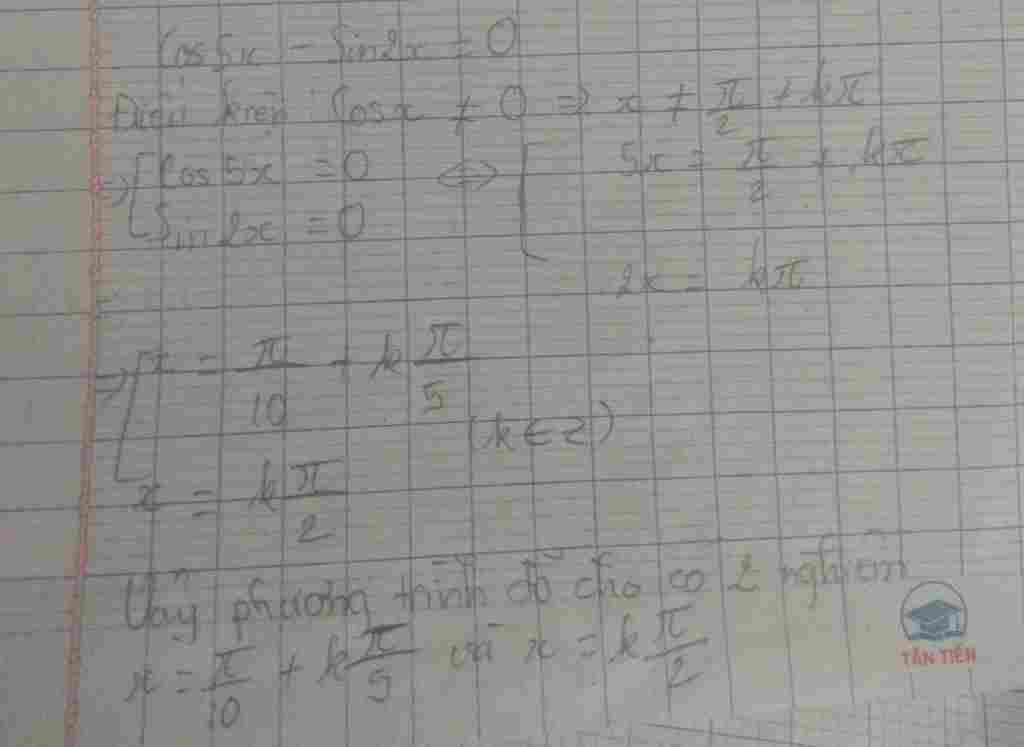 Cos5x - Sin2x = 0
Điều kiện: Cosx ≠ 0 => x ≠ π/2 + kπ
=> [Cos5x = 0 <=> [5x = π/2 + kπ
[Sin2x = 0
2x = kπ
=> [x = π/10 + k π/5
(k ∈ Z)
x = k π/2
Vậy phương trình đã cho có 2 nghiệm
x = π/10 + k π/5 và x = k π/2
TÂN TIẾN